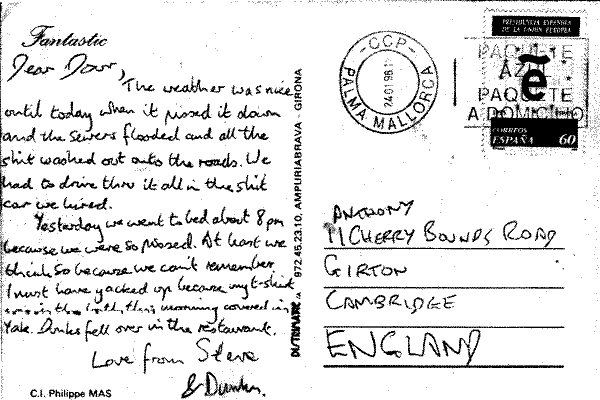 Fantastic
Dear Dour,
The weather was nice
until today when it pissed it down
and the sewers flooded and all the
shit washed out onto the roads. We
had to drive thru it all in the shit
car we hired.
Yesterday we went to bed about 8pm
because we were so pissed. At least we
think so because we can't remember.
I must have yacked up because my t-shirt
was in the bath this morning covered in
Yake. Dunks fell over in the restaurant.
Love from Steve
& Dunks.
C.I. Philippe MAS
972.45.23.10. AMPURIABRAVA - GIRONA
CCP
PALMA MALLORCA
24 01 96
PAQUETE
AZUL
PAQUETE
A DOMICILIO
PRESIDENCIA ESPAÑOLA
DE LA UNION EUROPEA
CORREOS
ESPAÑA 60
ANTHONY
11 CHERRY BOUNDS ROAD
GIRTON
CAMBRIDGE
ENGLAND